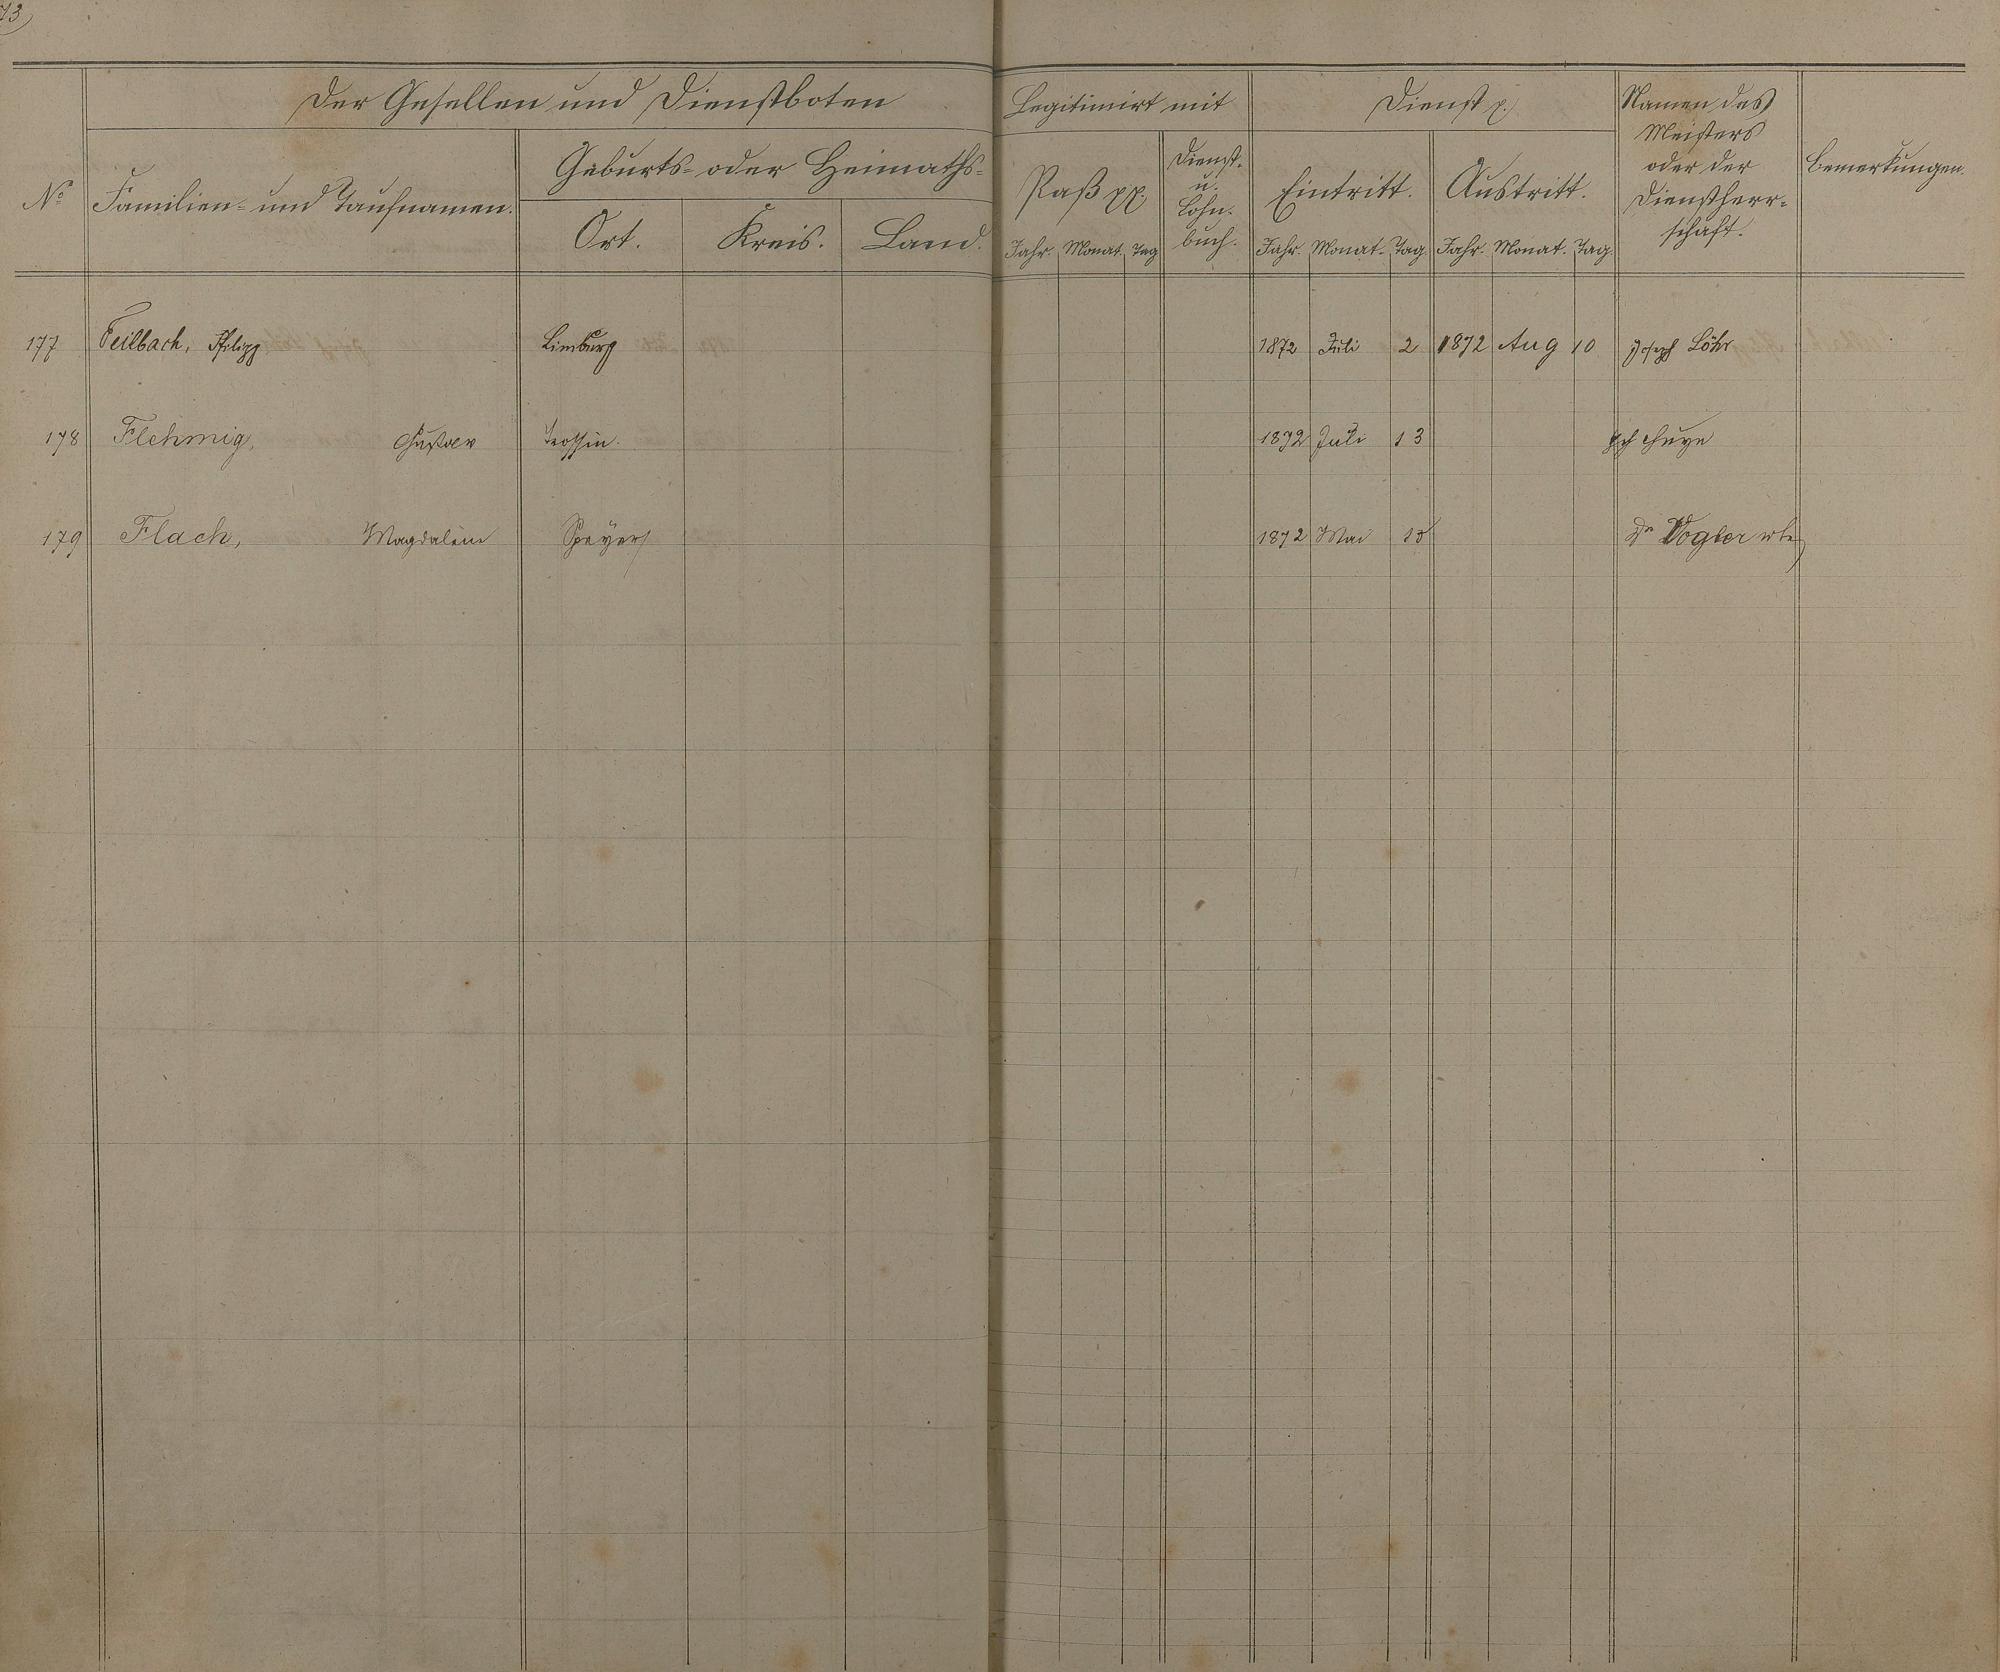 73
Der Gesellen und Dienstboten Legitimirt mit Dienst p. Namen des Meisters oder der Dienstherr- schaft. Bemerkungen.
No Familien- und Taufnamen. Geburts- oder Heimaths- Paß pp. Dienst- u. Lohn- buch. Eintritt. Austritt.
Ort. Kreis. Land. Jahr. Monat. Tag Jahr. Monat. Tag. Jahr. Monat. Tag.
177 Feilbach, Philipp Limburg 1872 Juli 2 1872 Aug 10 Joseph Löhr
178 Flehmig, Gustav Trossin. 1872 Juli 13
179 Flach, Magdalena Speyer 1872 Mai 15 Dr Vogler